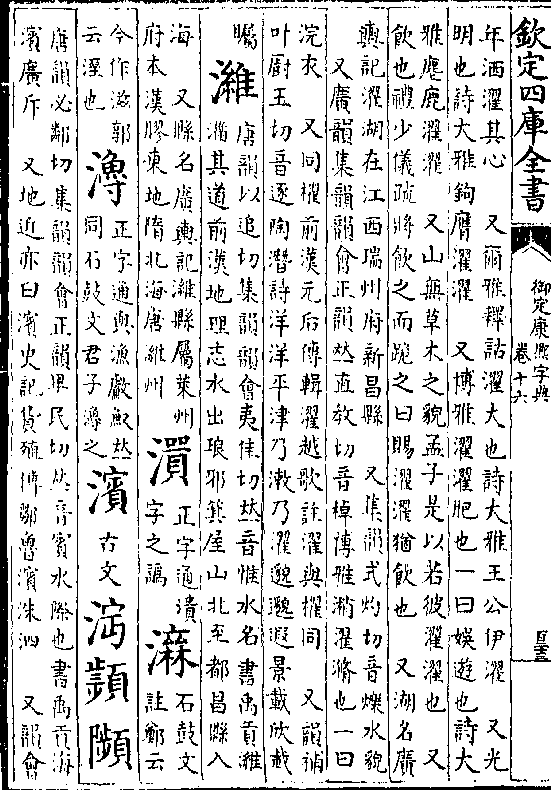 欽定四庫全書
御定康熙字典
卷十六
年洒濯其心　又爾雅釋詁濯大也詩大雅王公伊濯　又光
明也詩大雅鉤膺濯濯　又博雅濯濯肥也一曰娛遊也詩大
雅麀鹿濯濯　又山無草木之貌孟子是以若彼濯濯也　又
飲也禮少儀疏將飲之而跪之曰賜濯濯猶飲也　又湖名廣
輿記濯湖在江西瑞州府新昌縣　又集韻式灼切音爍水貌
又廣韻集韻韻會正韻𠀤直教切音棹博雅潎濯滫也一曰
浣衣　又同櫂前漢元后傳輯濯越歌註濯與櫂同　又韻補
叶厨玉切音逐陶潛詩洋洋平津乃漱乃濯邈邈遐景載欣載
矚
濰
唐韻以追切集韻韻會夷佳切𠀤音惟水名書禹貢濰
淄其道前漢地理志水出琅邪箕屋山北至都昌縣入
海　又縣名廣輿記濰縣屬萊州
府本漢膠東地隋北海唐濰州
濻
正字通潰
字之譌
㵖
石鼓文
註鄭云
今作滋郭
云溼也
㶆
正字通與漁𤅊䱷𠀤
同石鼓文君子㶆之
濱
古文
㴉
顮
𩕐
唐韻必鄰切集韻韻會正韻畢民切𠀤音賓水際也書禹貢海
濱廣斥　又地近亦曰濱史記貨殖傳鄒魯濱洙泗　又韻會